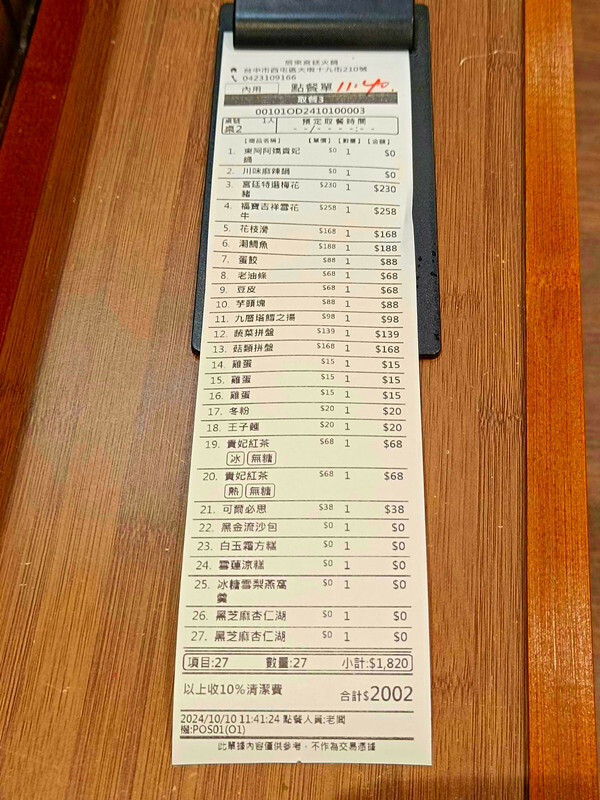 宮廷火鍋
台中市西屯區大墩十九街210號
0423109166
內用 點餐單 11:40
取餐3
00101OD2410100003
桌號 1人 預定取餐時間
桌2 --/-- --:--
【商品名稱】 【單價】 【數量】 【金額】
1. 東阿阿嬌貴妃鍋 $0 1 $0
2. 川味麻辣鍋 $0 1 $0
3. 宮廷特選梅花豬 $230 1 $230
4. 福寶吉祥雪花牛 $258 1 $258
5. 花枝滑 $168 1 $168
6. 潮鯛魚 $188 1 $188
7. 蛋餃 $88 1 $88
8. 老油條 $68 1 $68
9. 豆皮 $68 1 $68
10. 芋頭塊 $88 1 $88
11. 九層塔鱈之揚 $98 1 $98
12. 蔬菜拼盤 $139 1 $139
13. 菇類拼盤 $168 1 $168
14. 雞蛋 $15 1 $15
15. 雞蛋 $15 1 $15
16. 雞蛋 $15 1 $15
17. 冬粉 $20 1 $20
18. 王子麵 $20 1 $20
19. 貴妃紅茶 $68 1 $68
冰 無糖
20. 貴妃紅茶 $68 1 $68
熱 無糖
21. 可爾必思 $38 1 $38
22. 黑金流沙包 $0 1 $0
23. 白玉霜方糕 $0 1 $0
24. 雪蓮涼糕 $0 1 $0
25. 冰糖雪梨燕窩羹 $0 1 $0
26. 黑芝麻杏仁湖 $0 1 $0
27. 黑芝麻杏仁湖 $0 1 $0
項目:27 數量:27 小計:$1,820
以上收10%清潔費 合計$2002
2024/10/10 11:41:24 點餐人員:老闆
機:POS01(O1)
此單據內容僅供參考，不作為交易憑據